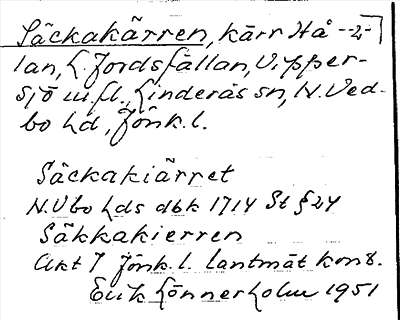 Säckakärren, kärr Hå -2-
lan, L. Jordsfällan, Vipper-
sjö m.fl., Linderås sn, N. Ved-
bo hd, Jönk. l.
Säckakiärret
N. Vbo hds dbk 1714 St § 24
Säkkakierren
Akt 7 Jönk. l. lantmät kont.
Erik Lönnerholm 1951